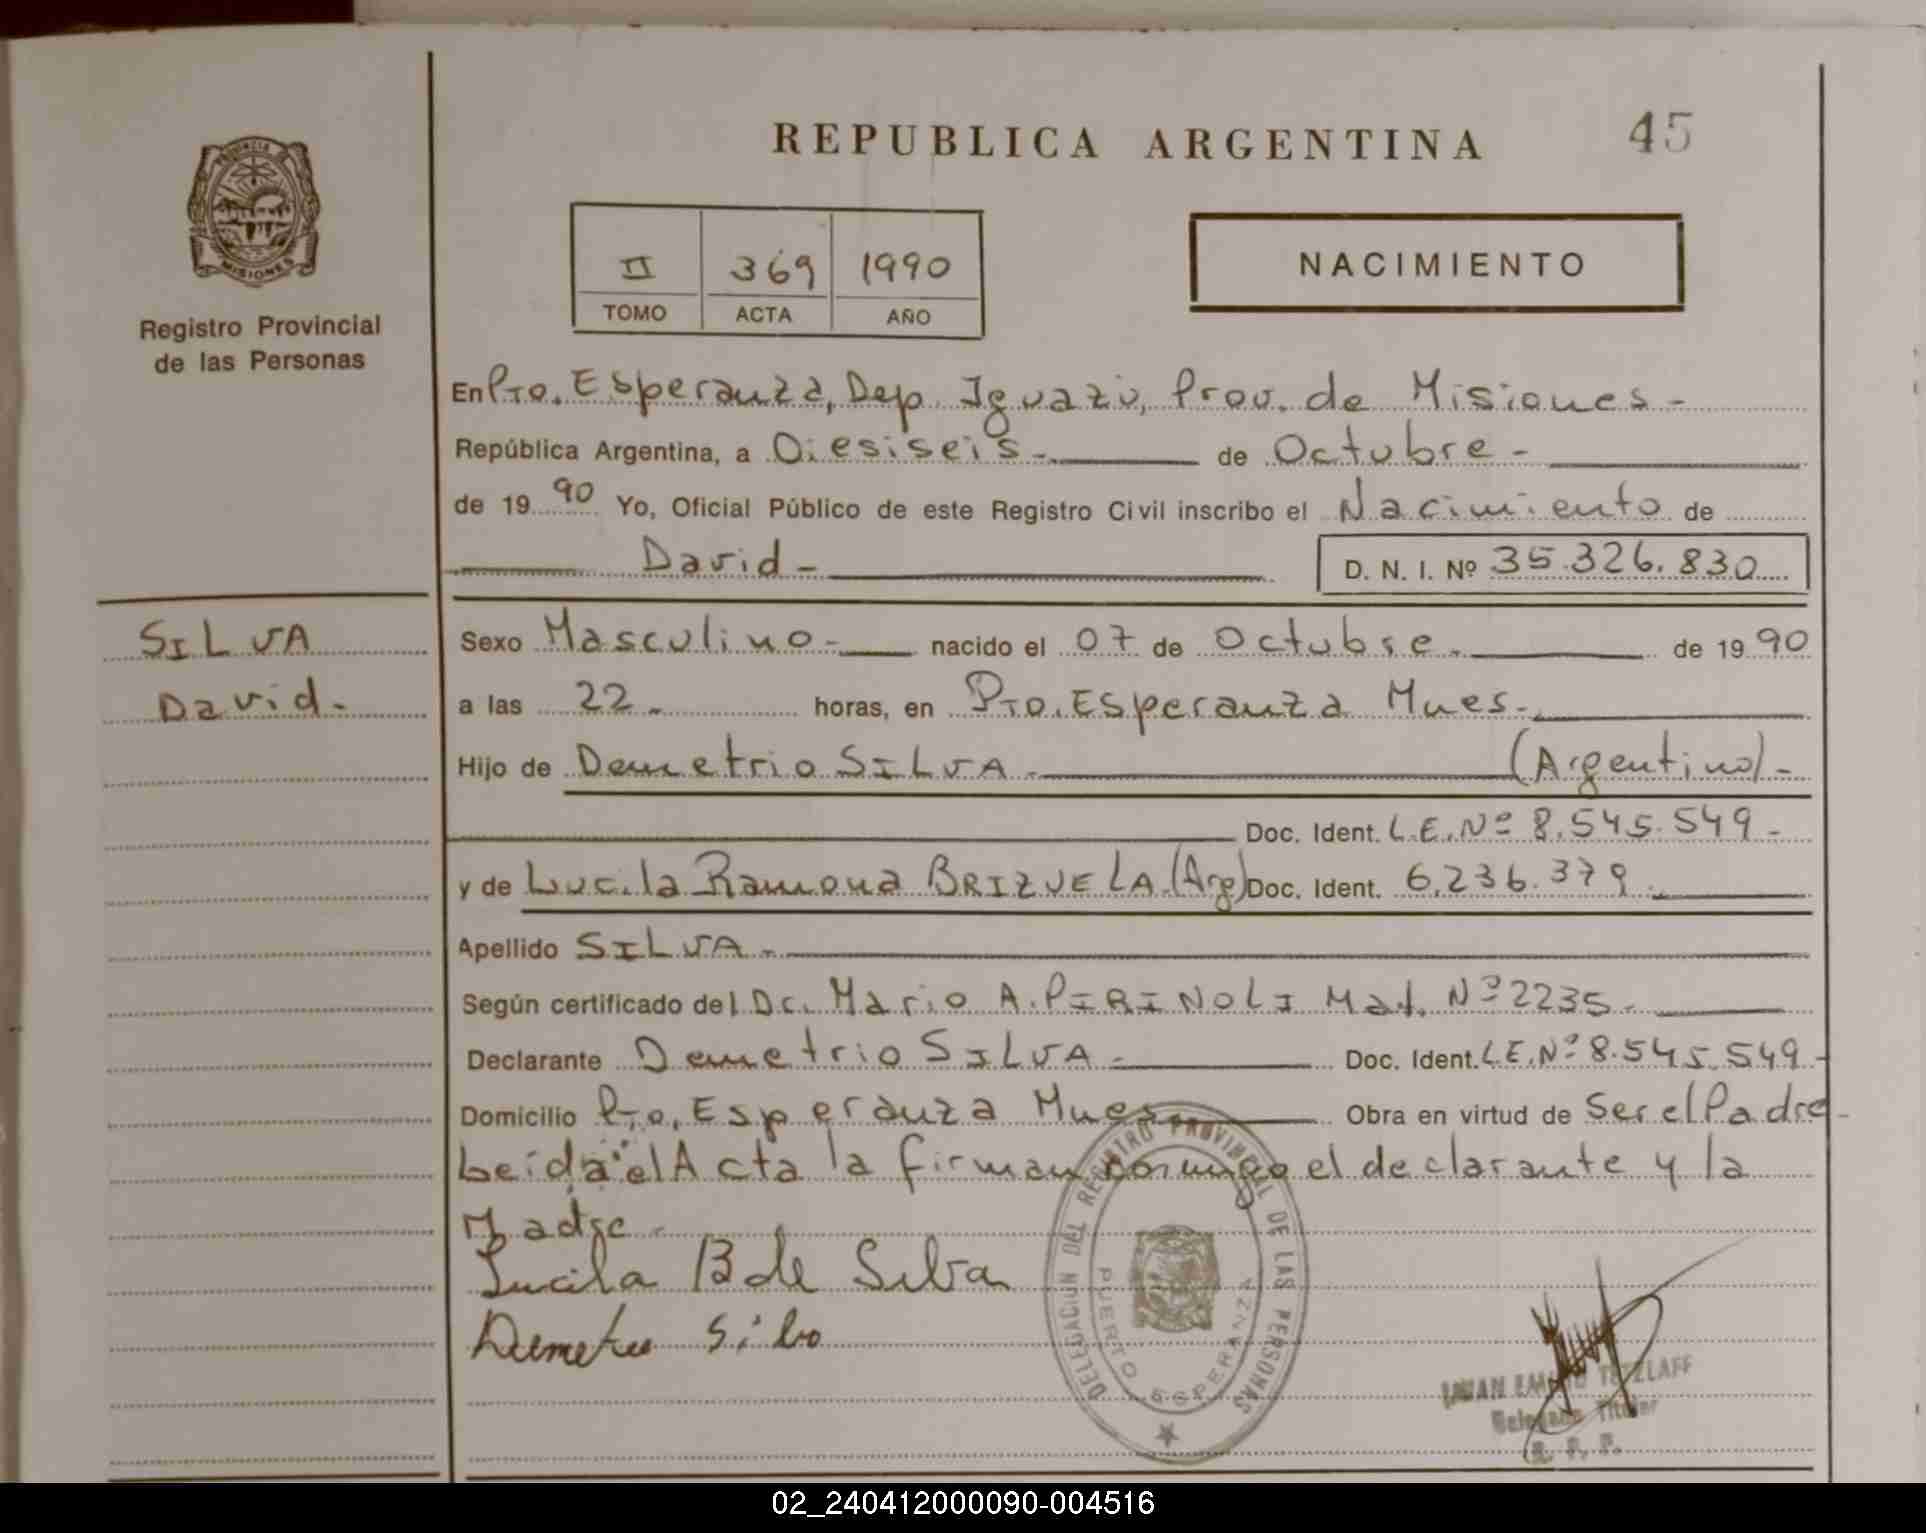 REPUBLICA ARGENTINA
45
PROVINCIA DE
MISIONES
Registro Provincial
de las Personas
II 369 1990
TOMO ACTA AÑO
NACIMIENTO
En Pto. Esperanza, Dep. Iguazú, Prov. de Misiones -
República Argentina, a Diesiseis - de Octubre -
de 19 90 Yo, Oficial Público de este Registro Civil inscribo el Nacimiento de
David - D. N. I. Nº 35.326.830
SILVA
David -
Sexo Masculino - nacido el 07 de Octubre. de 19 90
a las 22 - horas, en Pto. Esperanza Mnes -
Hijo de Demetrio SILVA - (Argentino) -
Doc. Ident. L.E. Nº 8.545.549 -
y de Lucila Ramona BRIZUELA. (Arg) Doc. Ident. 6.236.379.
Apellido SILVA -
Según certificado del Dr. Mario A. PIRINOLI Mat. Nº 2235 -
Declarante Demetrio SILVA - Doc. Ident. L.E. Nº 8.545.549 -
Domicilio Pto. Esperanza Mnes Obra en virtud de Ser el Padre -
Leída el Acta la firman conmigo el declarante y la
Madre -
Lucila B de Silva
Demetrio Silva
DELEGACION DEL REGISTRO PROVINCIAL DE LAS PERSONAS
PUERTO ESPERANZA
JUAN EMILIO TETZLAFF
Delegado Titular
R. P. P.
02_240412000090-004516